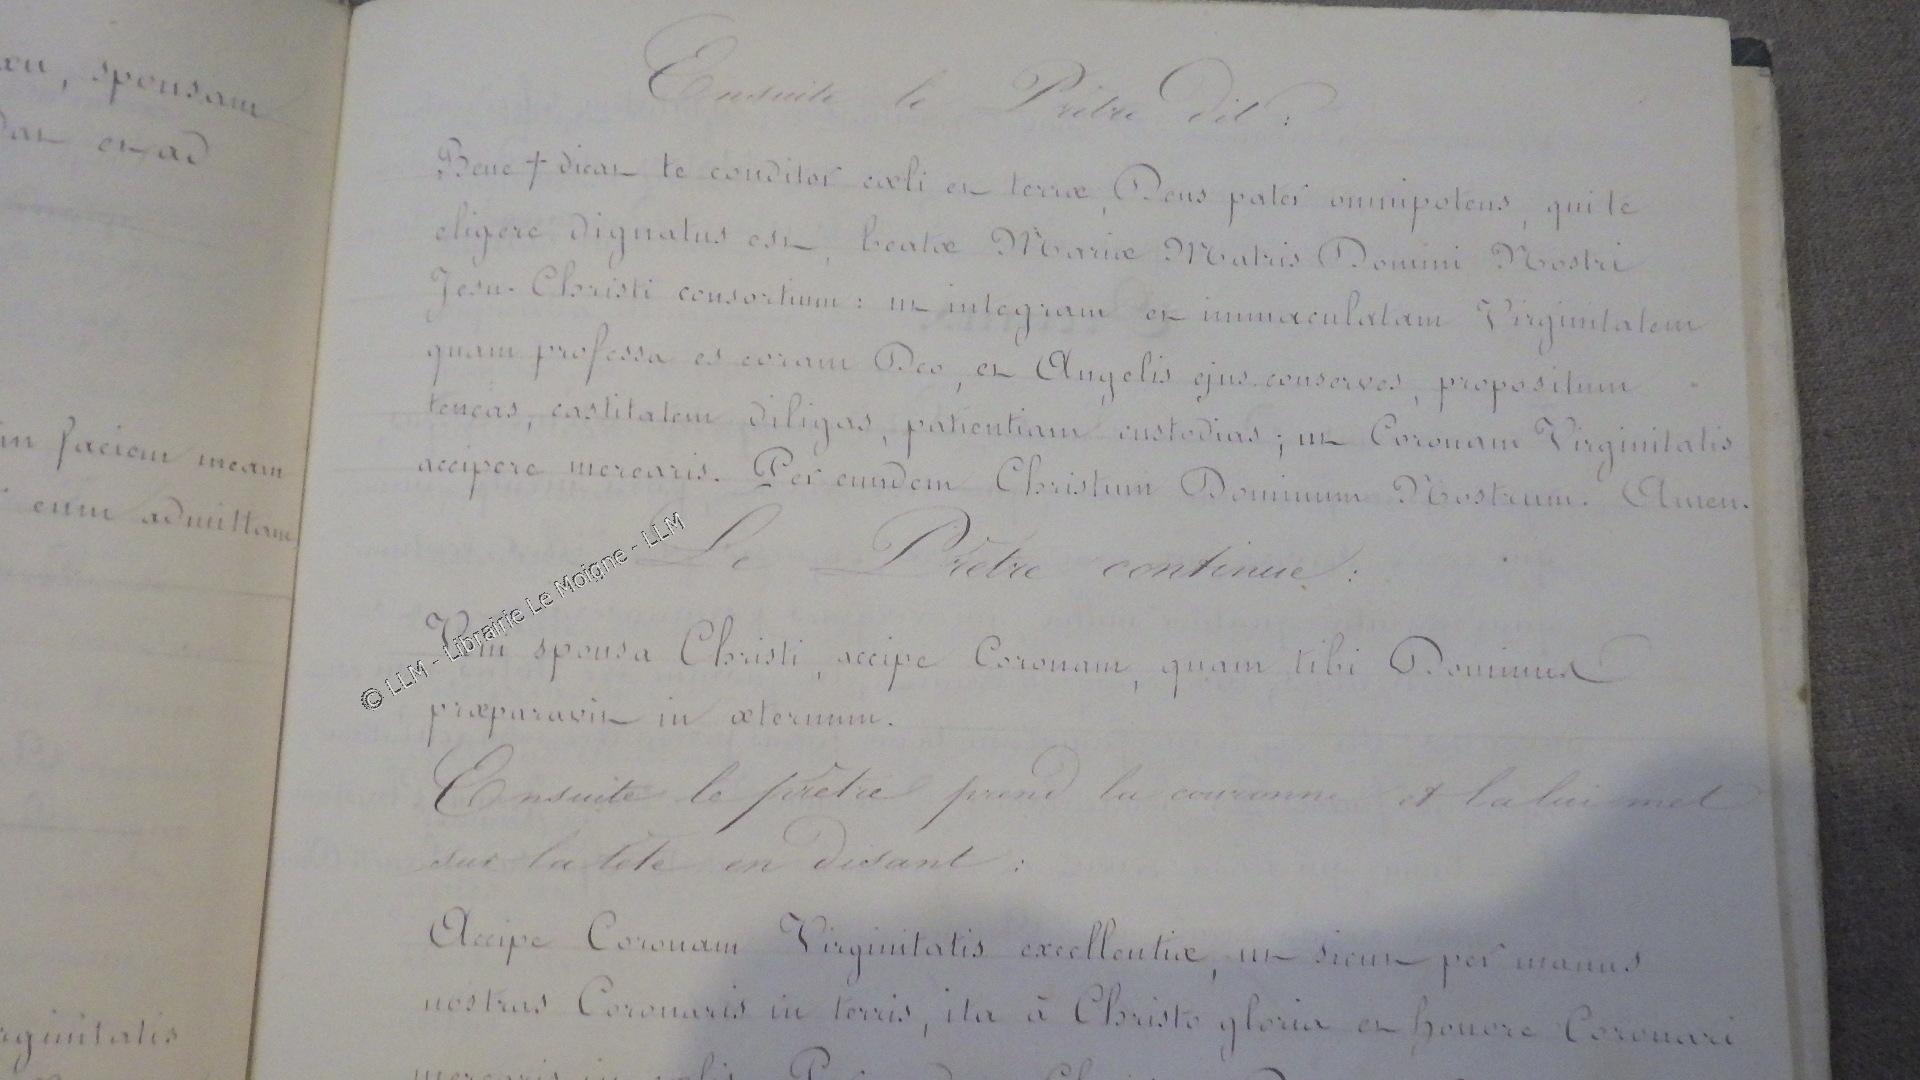 spousam
et ad
faciem meam
eum admittam
rginitatis
Ensuite le Prêtre dit :
Bene † dicat te conditor cœli et terræ, Deus pater omnipotens, qui te
eligere dignatus est, beatæ Mariæ Matris Domini Nostri
Jesu-Christi consortium : ut integram et immaculatam Virginitatem
quam professa es coram Deo, et Angelis ejus conserves, propositum
teneas, castitatem diligas, patientiam custodias ; ut Coronam Virginitatis
accipere merearis. Per eumdem Christum Dominum Nostrum. Amen.
Le Prêtre continue :
Veni sponsa Christi, accipe Coronam, quam tibi Dominus
præparavit in æternum.
Ensuite le prêtre prend la couronne et la lui met
sur la tête en disant :
Accipe Coronam Virginitatis excellentiæ, ut sicut per manus
nostras Coronaris in terris, ita à Christo gloria et honore Coronari
merearis in cœlis. Christum
© LLM - Librairie Le Moigne - LLM